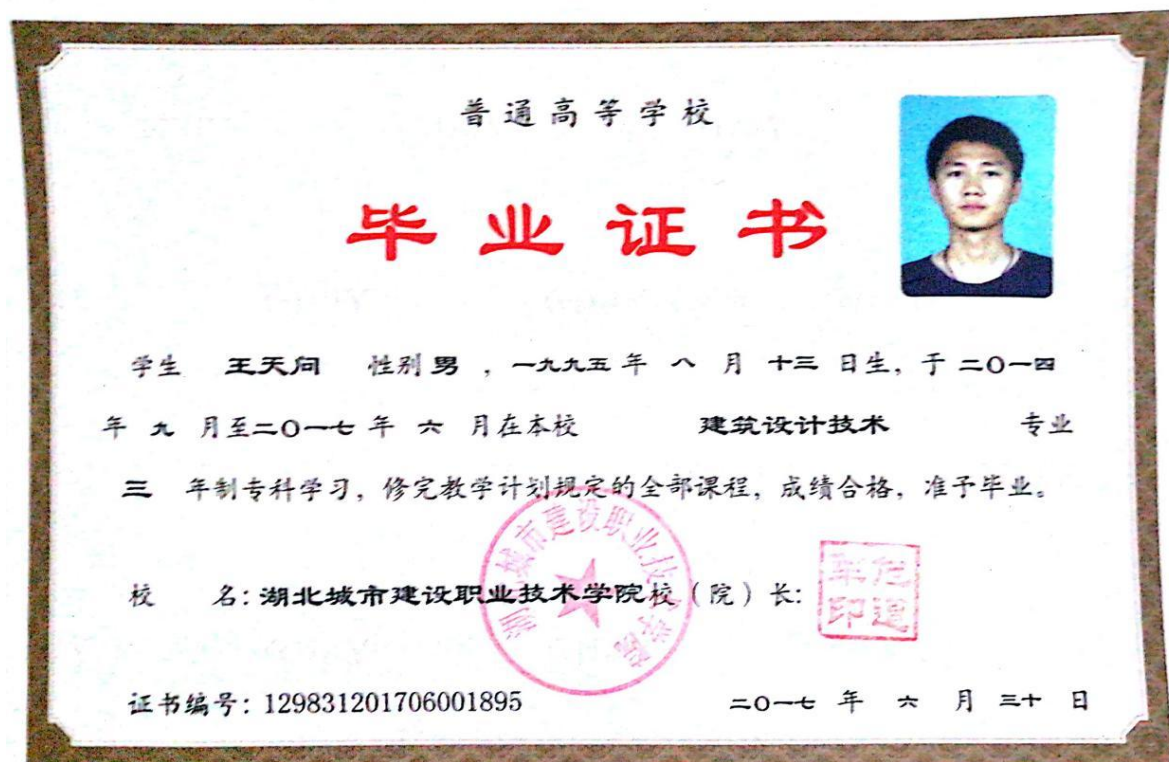 普通高等学校
毕业证书
学生 王天问 性别 男 ，一九九五 年 八 月 十三 日生，于 二〇一四
年 九 月至二〇一七 年 六 月在本校 建筑设计技术 专业
三 年制专科学习，修完教学计划规定的全部课程，成绩合格，准予毕业。
湖北城市建设职业技术学院
校 名：湖北城市建设职业技术学院校（院）长：
证书编号：129831201706001895
二〇一七 年 六 月 三十 日